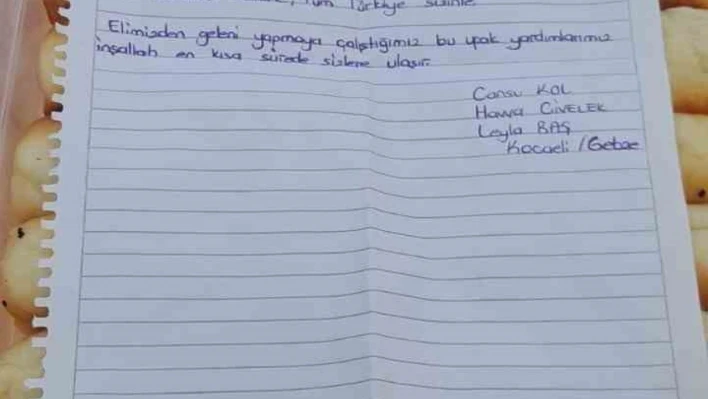 , Tüm Türkiye sizinle
Elimizden geleni yapmaya çalıştığımız bu ufak yardımlarımız
inşallah en kısa sürede sizlere ulaşır.
Cansu KOL
Havva CİVELEK
Leyla BAŞ
Kocaeli / Gebze